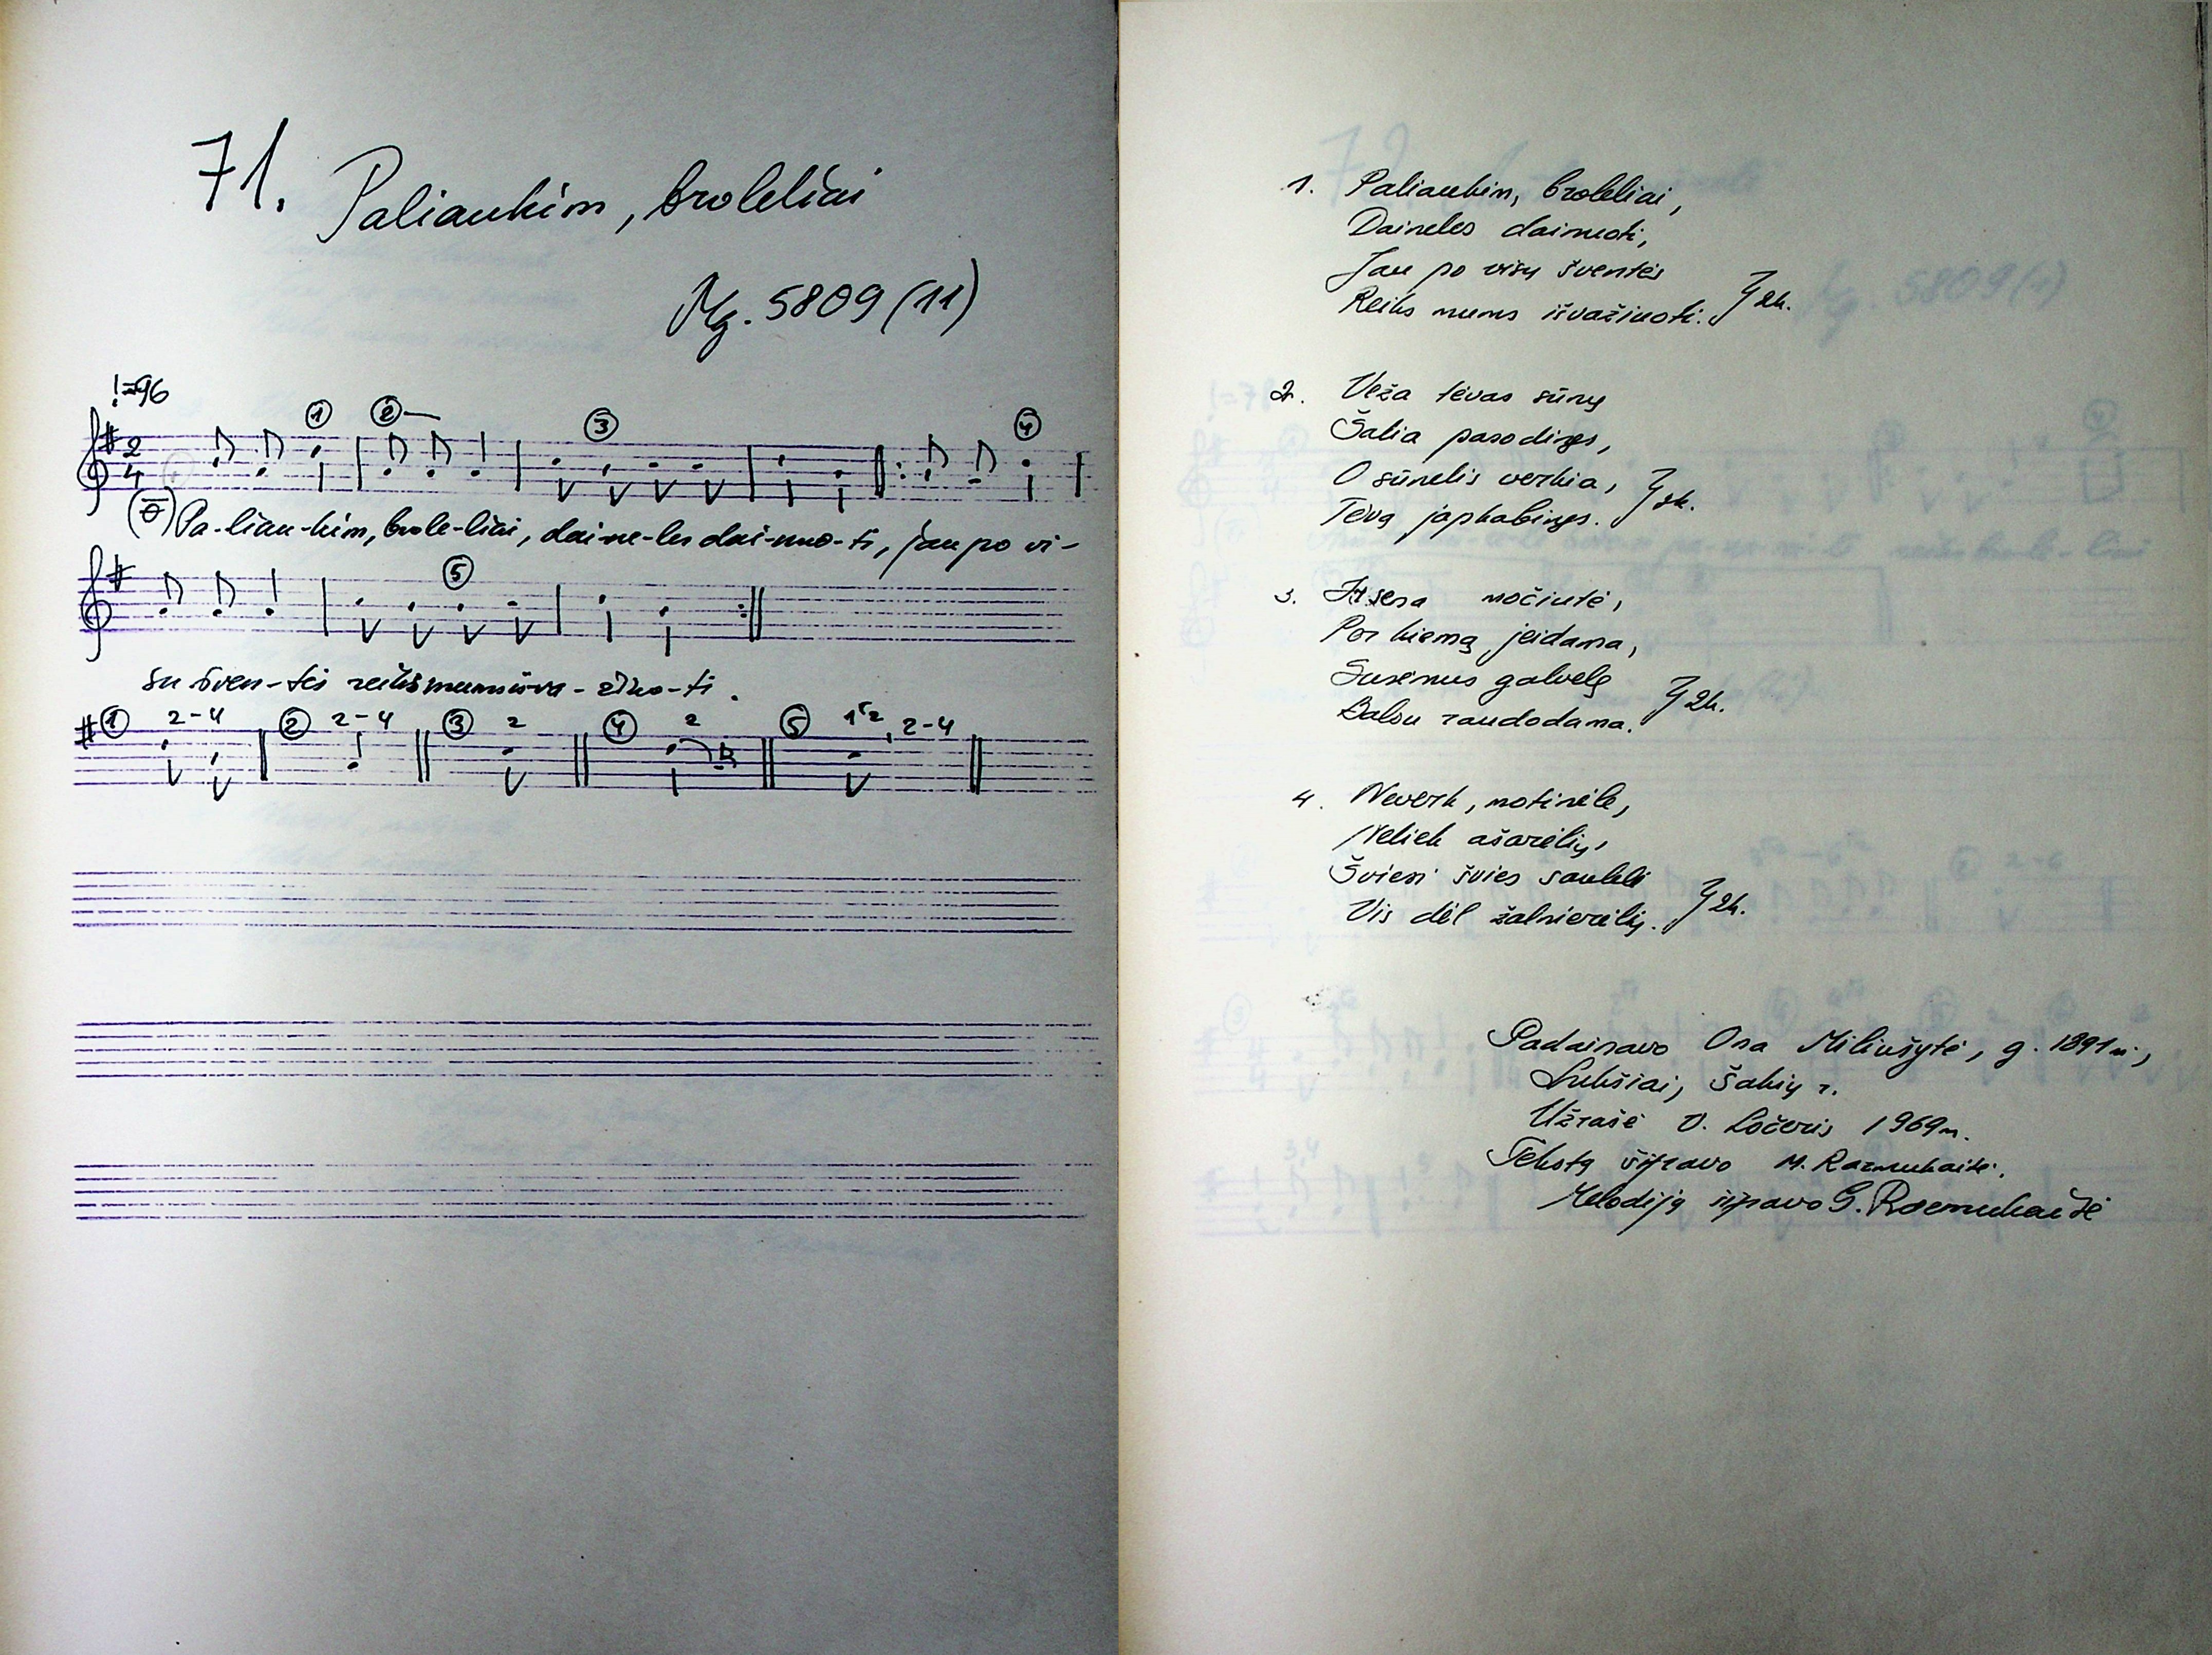 71. Paliaukim, broleliai
Mg. 5809 (11)
♩=96
① ② ③ ④
2
4
Pa-liau-kim, brole-liai, dai-ne-les dai-nuo-ti, jau po vi-
⑤
sų šven-tės reiks mums išva-žiuo-ti.
① 2-4 ② 2-4 ③ 2 ④ 2 ⑤ 2-4
1. Paliaukim, broleliai,
Daineles dainuoti,
Jau po visų šventės
Reiks mums išvažiuoti. } 2k.
2. Veža tėvas sūnų
Šalia pasodinęs,
O sūnelis verkia,
Tėvą apkabinęs. } 2k.
3. sena močiutė,
Per kiemą jeidama,
Susėmus galvelę
Balsu raudodama. } 2k.
4. Neverk, motinėle,
Neliek ašarėlių,
Švies švies saulelė
Vis dėl žalnierėlių. } 2k.
Padainavo Ona Miliušytė, g. 1891 m.,
Lukšiai, Šakių r.
Užrašė V. Ločeris 1969 m.
Tekstą išifravo M. Razmukaitė.
Melodiją šifravo G. Razmukaitė